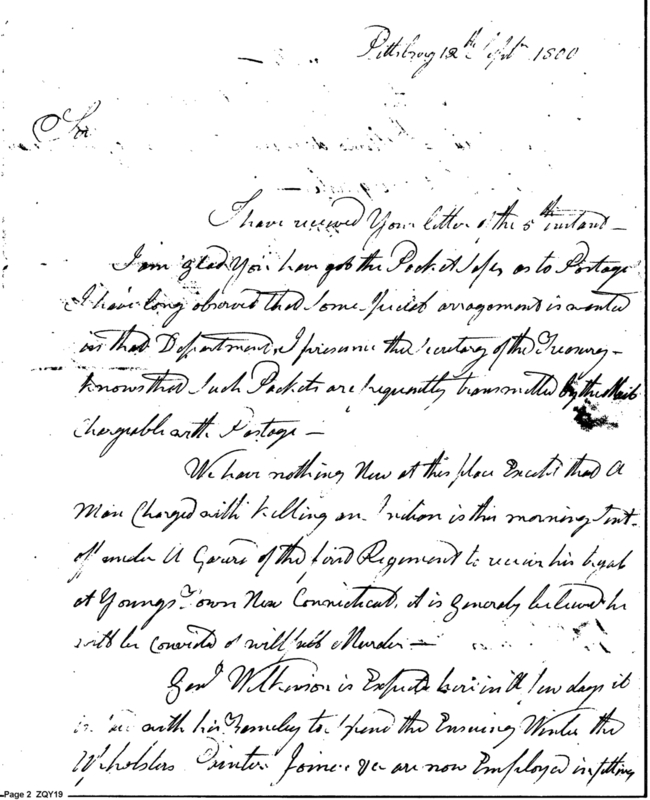 Pittsburg 12th Sept 1800
Sir
I have received Your letter of the 5th instant —
I am glad You have got the Packet safe, as to Postage
I have long observed that Some arragement is wanted
in that Department, I presume the Secretary of the Treasury —
knows that Such Packets are frequently transmitted by the Mail
Chargeable with Postage —
We have nothing New at this place Except that A
Man Charged with Killing an Indian is this morning Sent
off under A Guard of the first Regiment to receive his tryal
at Youngs Town New Connecticut, it is generaly believed he
will be convicted of willful Murder —
Genl Wilkinson is Expected here in A few days it
is with his Fameley to Spend the Ensuing Winter the
Upholders Painter Joiner &c are now Employed in fitting
Page 2 ZQY19